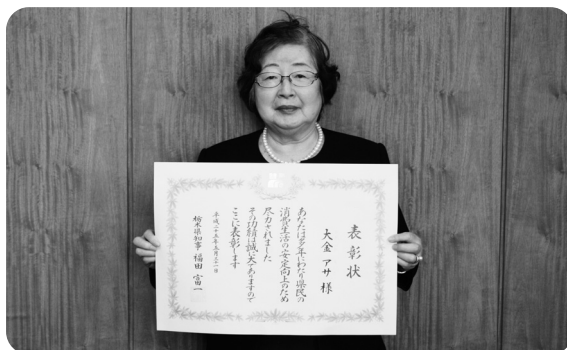 表彰状
大金 アサ 様
あなたは多年にわたり県民の
消費生活の安定向上のため
尽力されました
その功績は誠に大でありますので
ここに表彰します
平成二十五年五月二十一日
栃木県知事 福田 富一